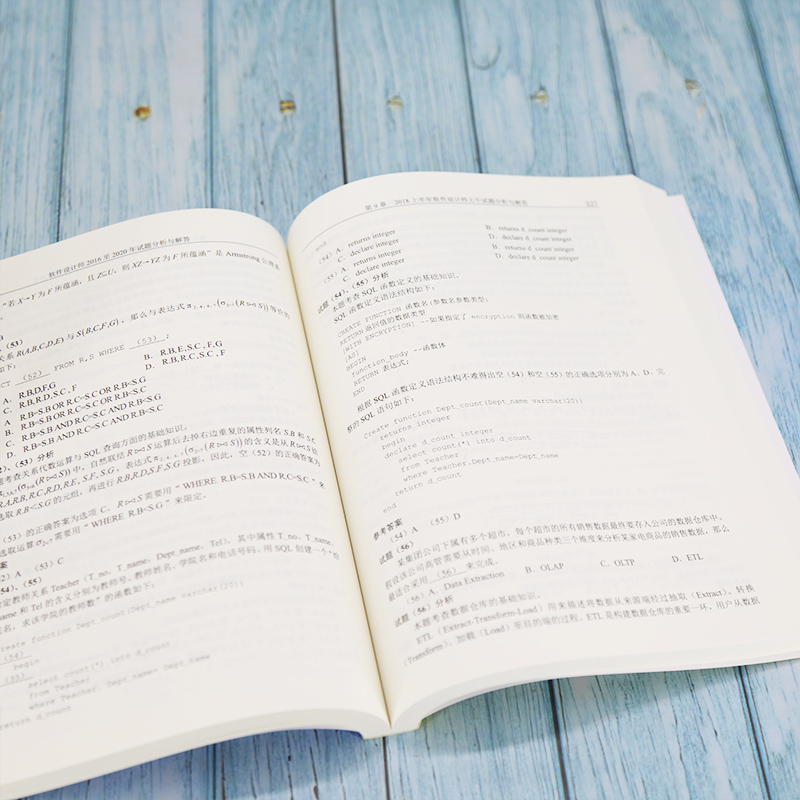 软件设计师 2016 至 2020 年试题分析与解答
“若 X→Y 为 F 所蕴涵，且 Z⊆U，则 XZ→YZ 为 F 所蕴涵”是 Armstrong 公理系
(53)
关系 R(A,B,C,D,E) 与 S(B,C,F,G)，那么与表达式
等价的
如下：
CT (52) FROM R,S WHERE (53) ;
A. R.B,D,F,G
B. R.B,E,S.C,F,G
C. R.B,R.D,S.C,F
D. R.B,R.C,S.C,F
A. R.B=S.B OR R.C=S.C OR R.B<S.G
B. R.B=S.B OR R.C=S.C OR R.B<S.C
C. R.B=S.B AND R.C=S.C AND R.B<S.G
D. R.B=S.B AND R.C=S.C AND R.B<S.C
、(53) 分析
题考查关系代数运算与 SQL 查询方面的基础知识。
中，自然联结 R⋈S 运算后去掉右边重复的属性列名 S.B 和 S.C
R.A,R.B,R.C,R.D,R.E,S.F,S.G，表达式
的含义是从 R⋈S 结
选取 R.B<S.G 的元组，再进行 R.B,R.D,S.F,S.G 投影，因此，空（52）的正确答案为
(53) 的正确答案为选项 C。R⋈S 需要用“WHERE R.B=S.B AND R.C=S.C”来
选取运算 σ2<7 需要用“WHERE R.B<S.G”来限定。
答案
) A (53) C
(54)、(55)
定教师关系 Teacher（T_no，T_name，Dept_name，Tel），其中属性 T_no、T_name、
name 和 Tel 的含义分别为教师号、教师姓名、学院名和电话号码。用 SQL 创建一个“给
名，求该学院的教师数”的函数如下：
reate function Dept_count(Dept_name varchar(20))
(54)
begin
(55)
select count(*) into d_count
from Teacher
where Teacher. Dept_name= Dept_name
return d_count
第 9 章 2018 上半年软件设计师上午试题分析与解答 227
end
(54) A. returns integer
B. returns d_count integer
C. declare integer
D. declare d_count integer
(55) A. returns integer
B. returns d_count integer
C. declare integer
D. declare d_count integer
试题（54）、（55）分析
本题考查 SQL 函数定义的基础知识。
SQL 函数定义语法结构如下：
CREATE FUNCTION 函数名(参数名参数类型)
RETURN 返回值的数据类型
[WITH ENCRYPTION] --如果指定了 encryption 则函数被加密
[AS]
BEGIN
function_body --函数体
RETURN 表达式;
END
根据 SQL 函数定义语法结构不难得出空（54）和空（55）的正确选项分别为 A、D。完
整的 SQL 语句如下：
Create function Dept_count(Dept_name varchar(20))
returns integer
begin
declare d_count integer
select count(*) into d_count
from Teacher
where Teacher.Dept_name=Dept_name
return d_count
end
参考答案
(54) A (55) D
试题（56）
某集团公司下属有多个超市，每个超市的所有销售数据最终要存入公司的数据仓库中。
假设该公司高管需要从时间、地区和商品种类三个维度来分析某家电商品的销售数据，那么
最适合采用 (56) 来完成。
(56) A. Data Extraction B. OLAP C. OLTP D. ETL
试题（56）分析
本题考查数据仓库的基础知识。
ETL（Extract-Transform-Load）用来描述将数据从来源端经过抽取（Extract）、转换
（Transform）、加载（Load）至目的端的过程。ETL 是构建数据仓库的重要一环，用户从数据